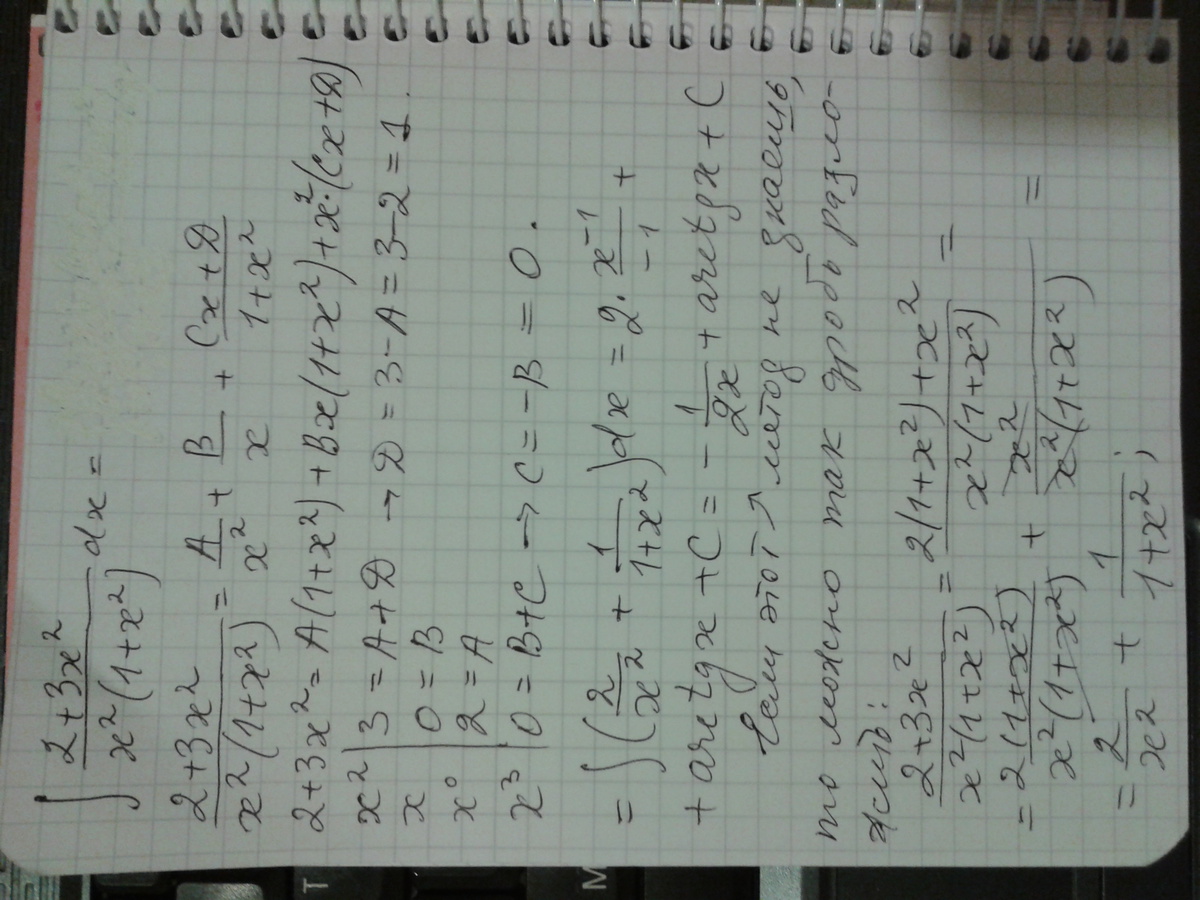 ∫ (2+3x²)/(x²(1+x²)) dx =
(2+3x²)/(x²(1+x²)) = A/x² + B/x + (Cx+D)/(1+x²)
2+3x² = A(1+x²) + Bx(1+x²) + x²·(Cx+D)
x² | 3 = A+D → D = 3-A = 3-2 = 1.
x | 0 = B
x⁰ | 2 = A
x³ | 0 = B+C → C = -B = 0.
= ∫(2/x² + 1/(1+x²))dx = 2·x⁻¹/-1 +
+ arctgx + C = - 1/2x + arctgx + C
Если этот ↗ метод не знаешь,
то можно так дробь разло-
жить:
(2+3x²)/(x²(1+x²)) = (2(1+x²)+x²)/(x²(1+x²)) =
= 2(1+x²)/(x²(1+x²)) + x²/(x²(1+x²)) =
= 2/x² + 1/(1+x²);
T
M